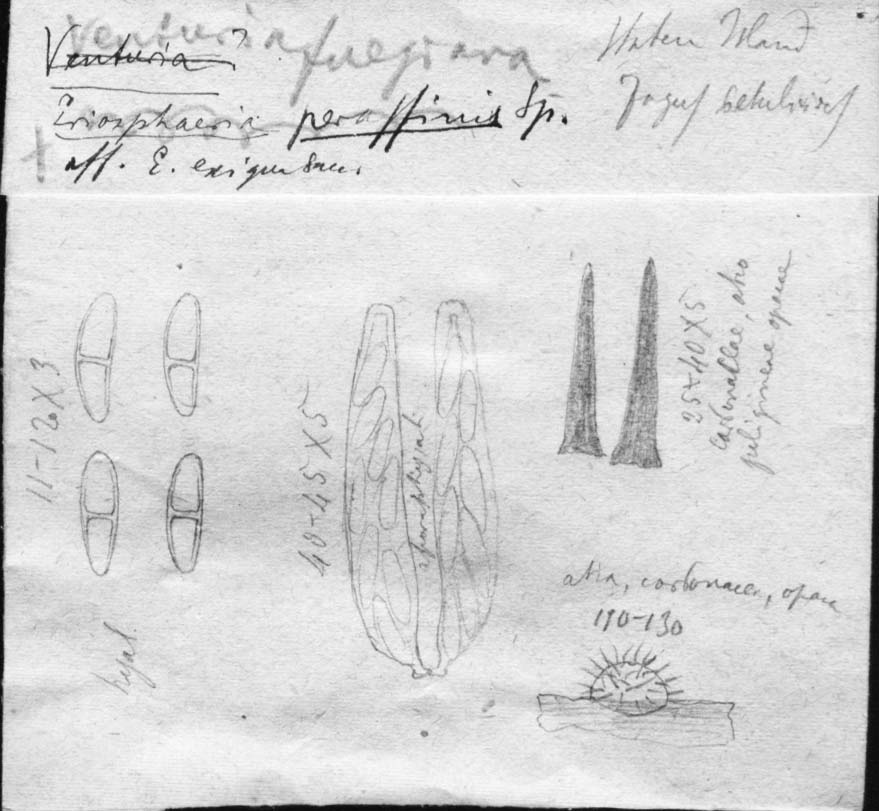 Venturia fuegiana
Venturia ?
Staten Island
Eriosphaeria peraffinis Sp.
Fagus betuloides
aff. E. exigua Sacc.
11-12 X 3
hyal.
40-45 X 5
aparaphysat.
25-40 X 5
carbonaceae, atro
fuligineae opacae
atra, carbonacea, opaca
110-130